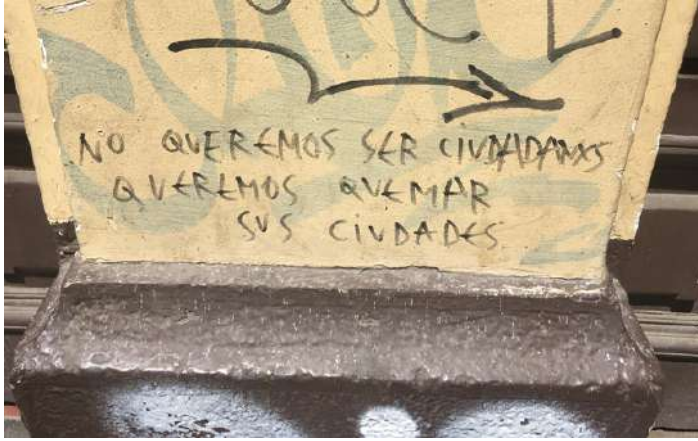 NO QUEREMOS SER CIUDADANXS
QUEREMOS QUEMAR
SUS CIUDADES